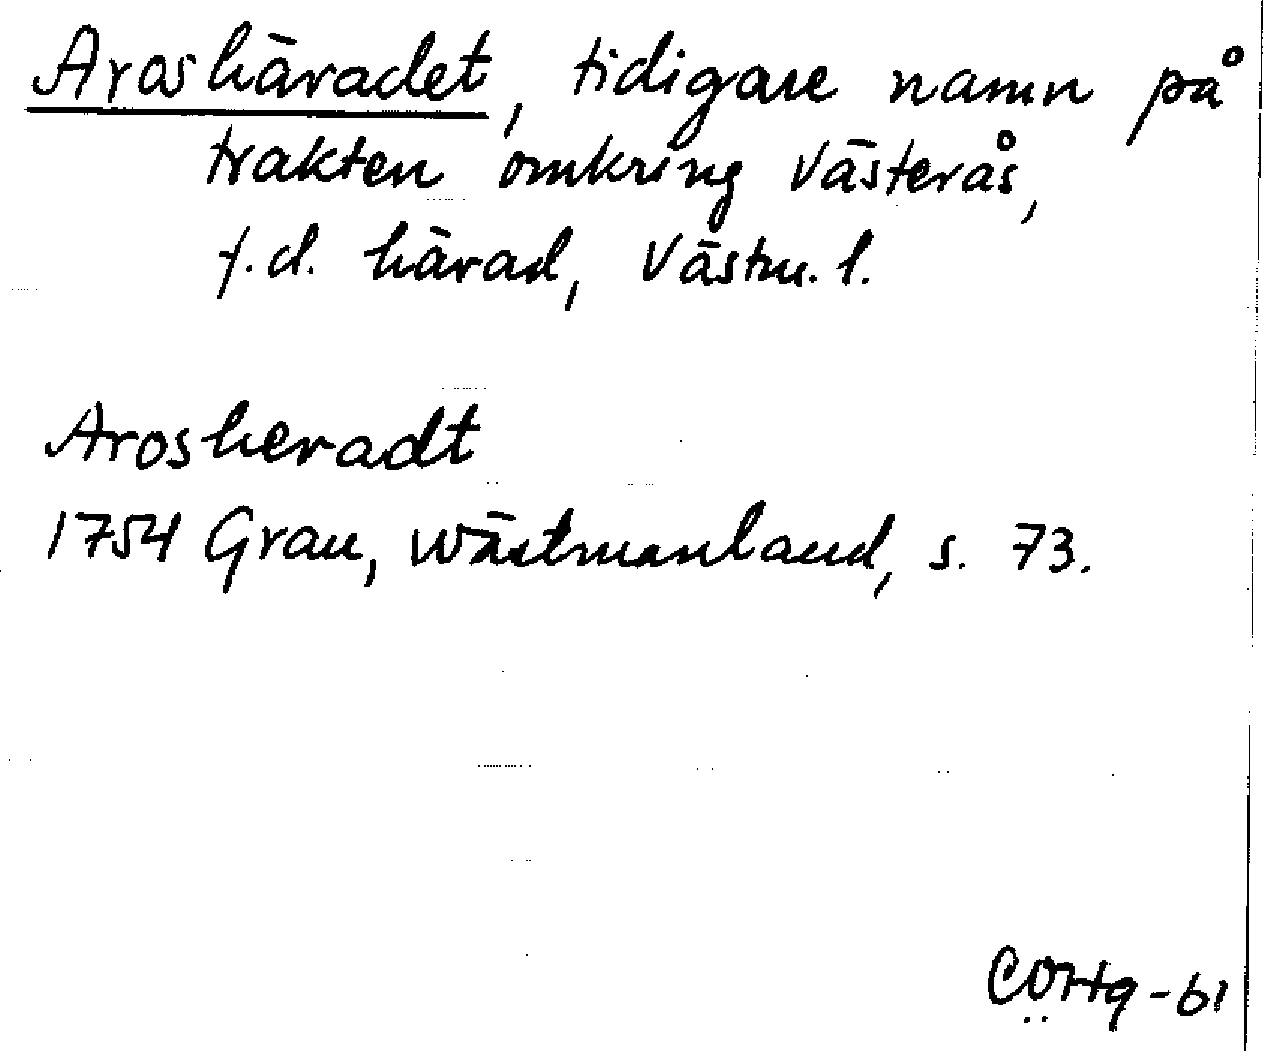 Aroshäradet, tidigare namn på
trakten omkring Västerås,
f.d. härad, Västm. l.
Arosheradt
1754 Grau, Wästmanland, s. 73.